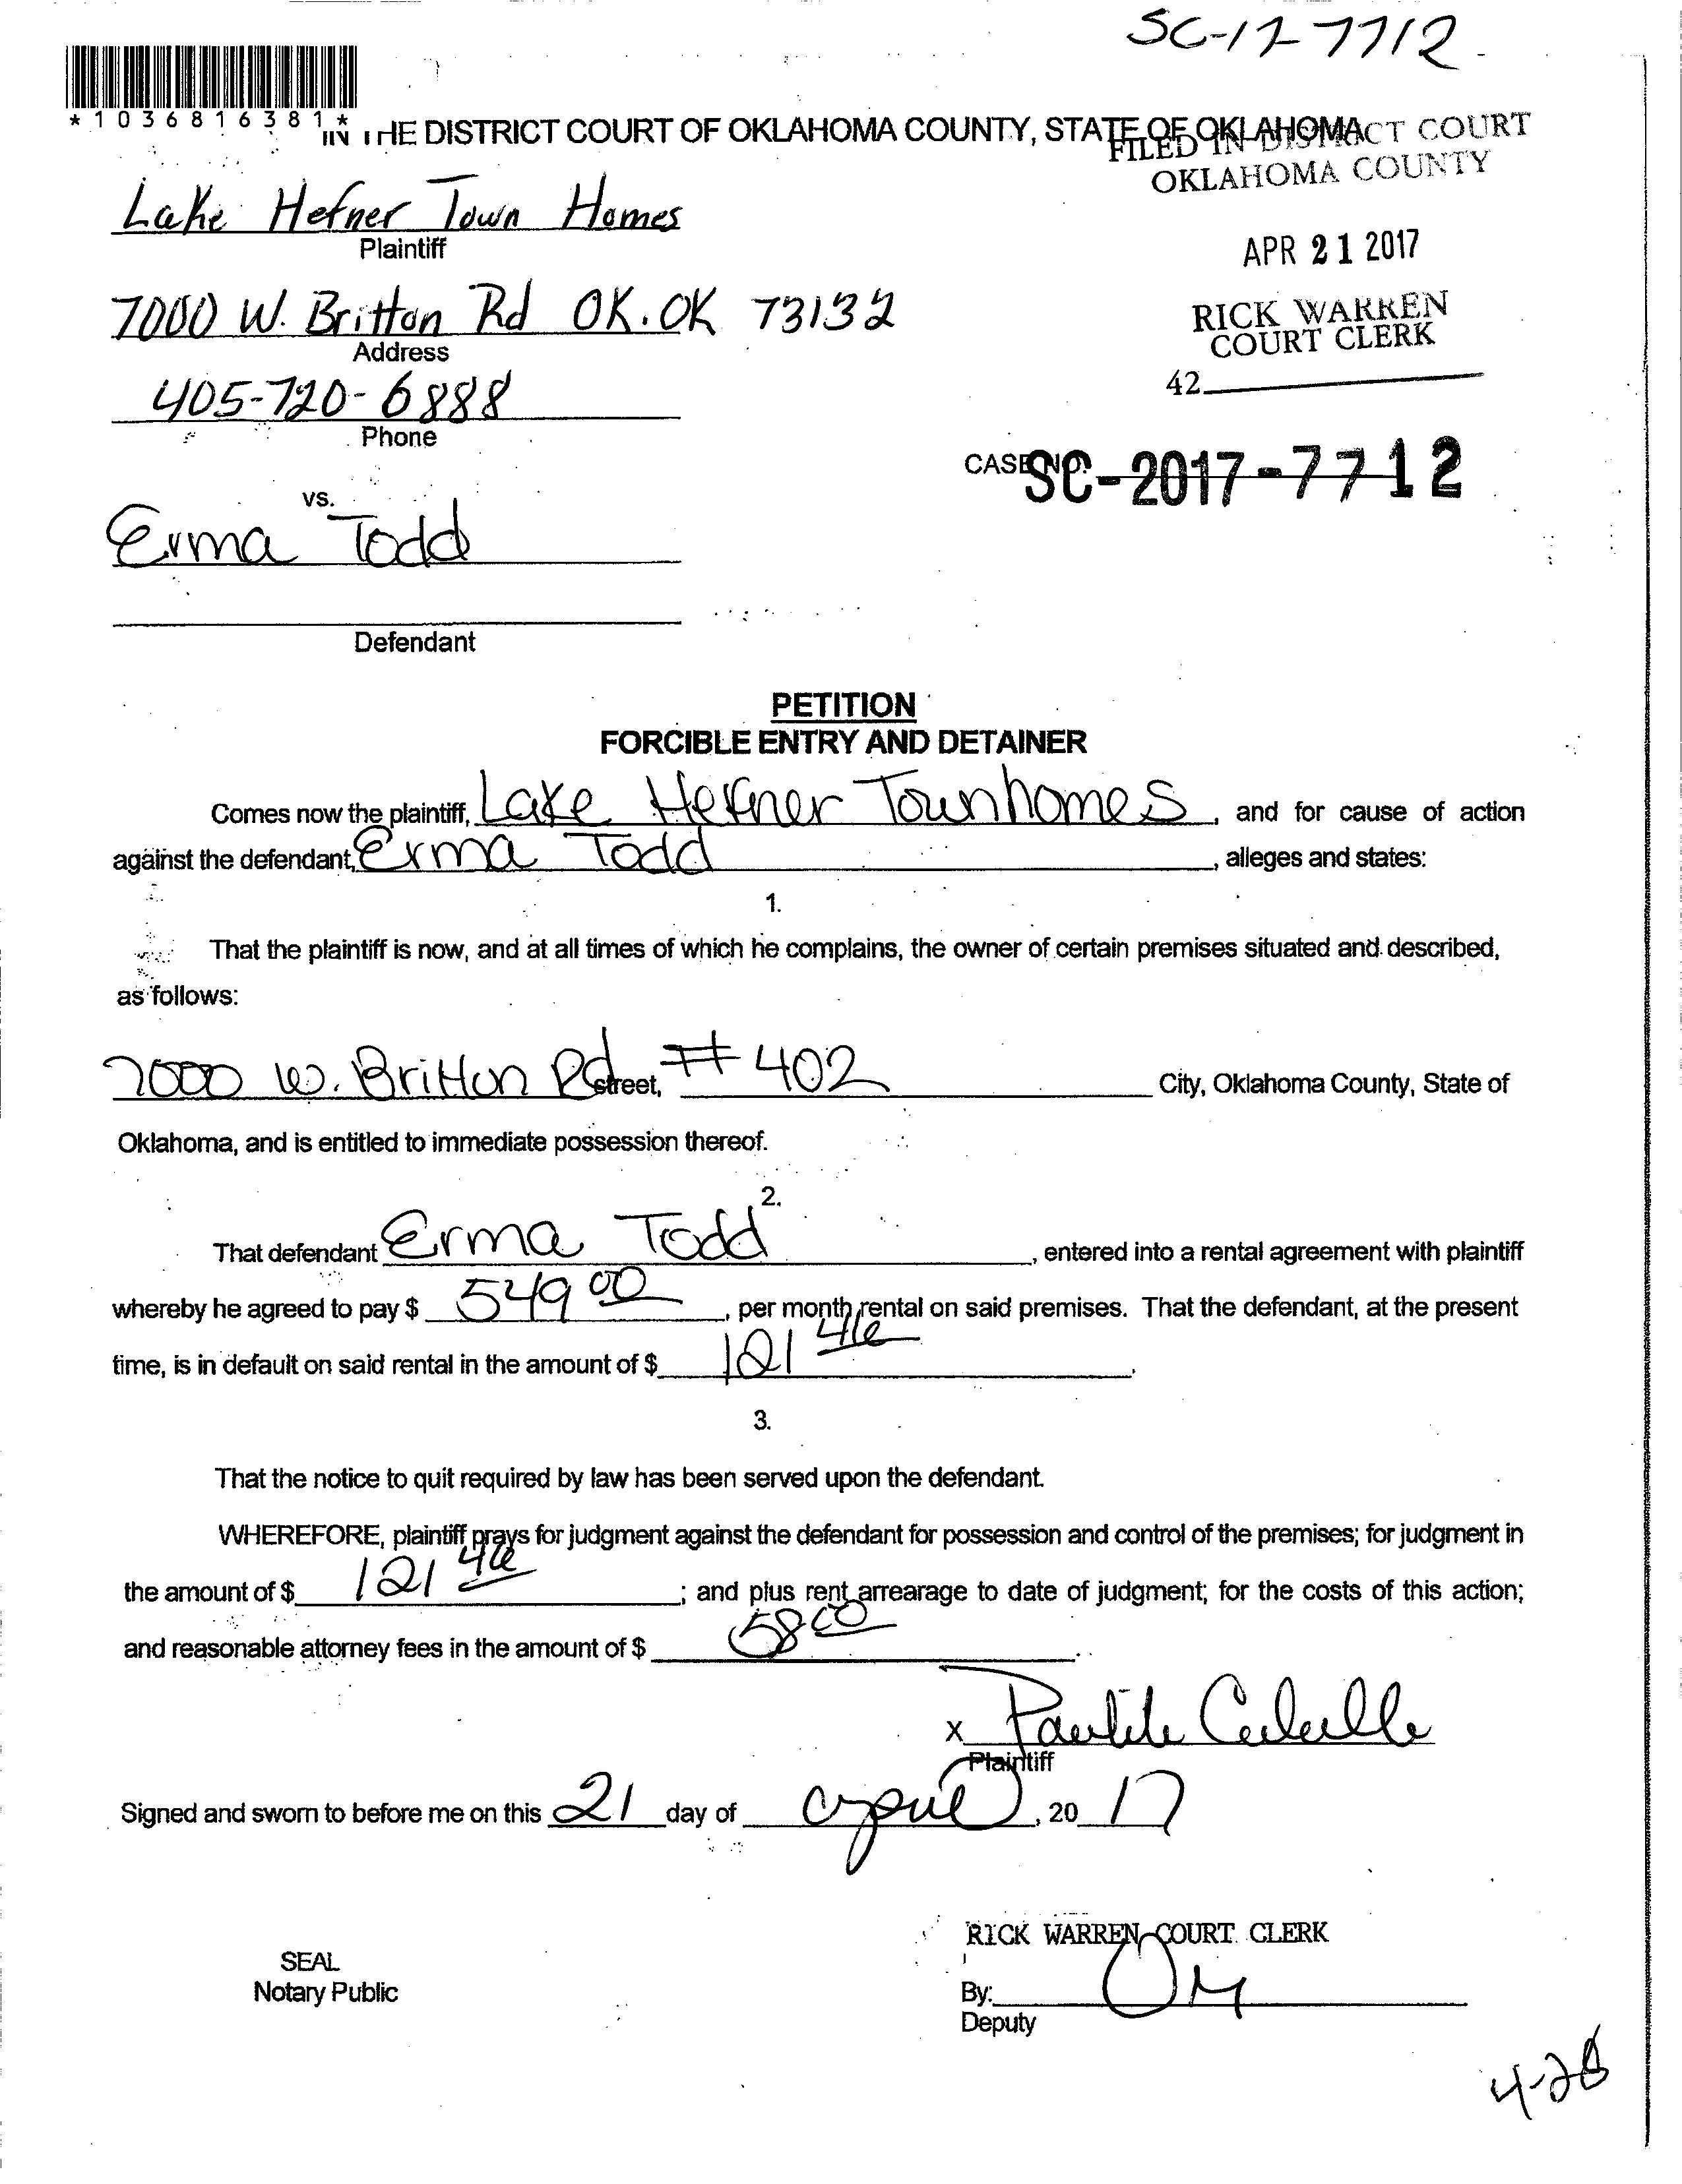 SC-17-7712
*1036816381*
IN THE DISTRICT COURT OF OKLAHOMA COUNTY, STATE OF OKLAHOMA
FILED IN DISTRICT COURT
OKLAHOMA COUNTY
Lake Hefner Town Homes
Plaintiff
APR 21 2017
7000 W. Britton Rd OK. OK 73132
Address
RICK WARREN
COURT CLERK
42
405-720-6888
Phone
CASE NO.
SC-2017-7712
vs.
Erma Todd
Defendant
PETITION
FORCIBLE ENTRY AND DETAINER
Comes now the plaintiff, Lake Hefner Townhomes, and for cause of action
against the defendant, Erma Todd, alleges and states:
1.
That the plaintiff is now, and at all times of which he complains, the owner of certain premises situated and described,
as follows:
7000 W. Britton Rd street, # 402 City, Oklahoma County, State of
Oklahoma, and is entitled to immediate possession thereof.
2.
That defendant Erma Todd, entered into a rental agreement with plaintiff
whereby he agreed to pay $ 549 00, per month rental on said premises. That the defendant, at the present
time, is in default on said rental in the amount of $ 121 46.
3.
That the notice to quit required by law has been served upon the defendant.
WHEREFORE, plaintiff prays for judgment against the defendant for possession and control of the premises; for judgment in
the amount of $ 121 46; and plus rent arrearage to date of judgment; for the costs of this action;
and reasonable attorney fees in the amount of $ 58 00.
X
Plaintiff
Signed and sworn to before me on this 21 day of april, 20 17
RICK WARREN COURT CLERK
SEAL
Notary Public
By:
Deputy
4-28